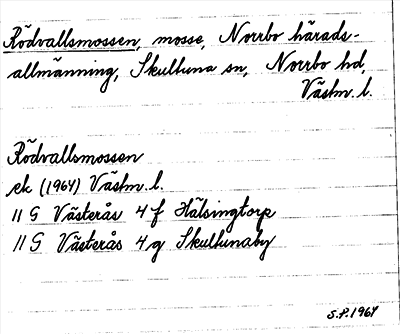 Rödvallsmossen, mosse, Norrbo härads-
allmänning, Skultuna sn, Norrbo hd,
Västm. l.
Rödvallsmossen
ek (1964) Västm. l.
11 G Västerås 4 f Hälsingtorp
11 G Västerås 4 g Skultunaby
S.P. 1964